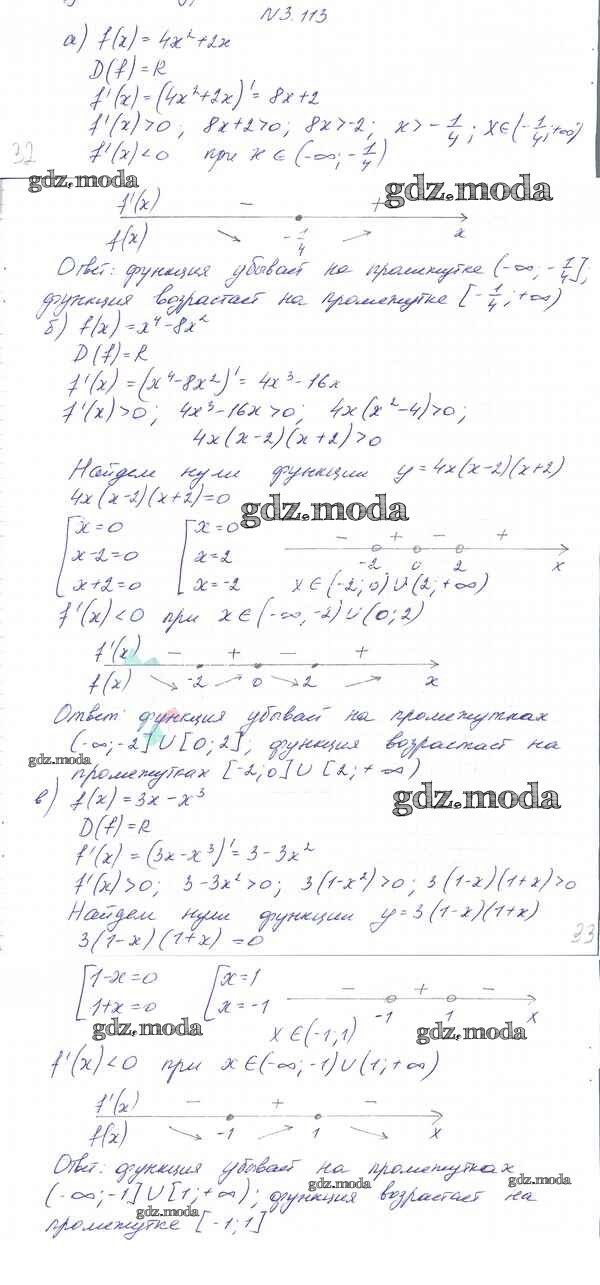 N3.113
а) f(x) = 4x²+2x
D(f)=R
f'(x)=(4x²+2x)'=8x+2
f'(x)>0; 8x+2>0; 8x>-2; x>-1/4; x∈(-1/4;+∞)
32
f'(x)<0 при x∈(-∞;-1/4)
gdz.moda
gdz.moda
f'(x) - +
f(x) -1/4 x
Ответ: функция убывает на промежутке (-∞;-1/4];
функция возрастает на промежутке [-1/4;+∞)
б) f(x)=x⁴-8x²
D(f)=R
f'(x)=(x⁴-8x²)'=4x³-16x
f'(x)>0; 4x³-16x>0; 4x(x²-4)>0;
4x(x-2)(x+2)>0
Найдем нули функции y=4x(x-2)(x+2)
4x(x-2)(x+2)=0
gdz.moda
x=0 x=0 - + - +
x-2=0 x=2 -2 0 2 x
x+2=0 x=-2 x∈(-2;0)∪(2;+∞)
f'(x)<0 при x∈(-∞,-2)∪(0;2)
f'(x) - + - +
f(x) -2 0 2 x
Ответ: функция убывает на промежутках
(-∞;-2]∪[0;2], функция возрастает на
gdz.moda
промежутках [-2;0]∪[2;+∞)
gdz.moda
в) f(x)=3x-x³
D(f)=R
f'(x)=(3x-x³)'=3-3x²
f'(x)>0; 3-3x²>0; 3(1-x²)>0; 3(1-x)(1+x)>0
Найдем нули функции y=3(1-x)(1+x)
3(1-x)(1+x)=0
33
1-x=0 x=1 - + -
1+x=0 x=-1 -1 1 x
gdz.moda
x∈(-1;1)
gdz.moda
f'(x)<0 при x∈(-∞;-1)∪(1;+∞)
f'(x) - + -
f(x) -1 1 x
Ответ: функция убывает на промежутках
(-∞;-1]∪[1;+∞); функция возрастает на
gdz.moda
gdz.moda
промежутке [-1;1]
gdz.moda